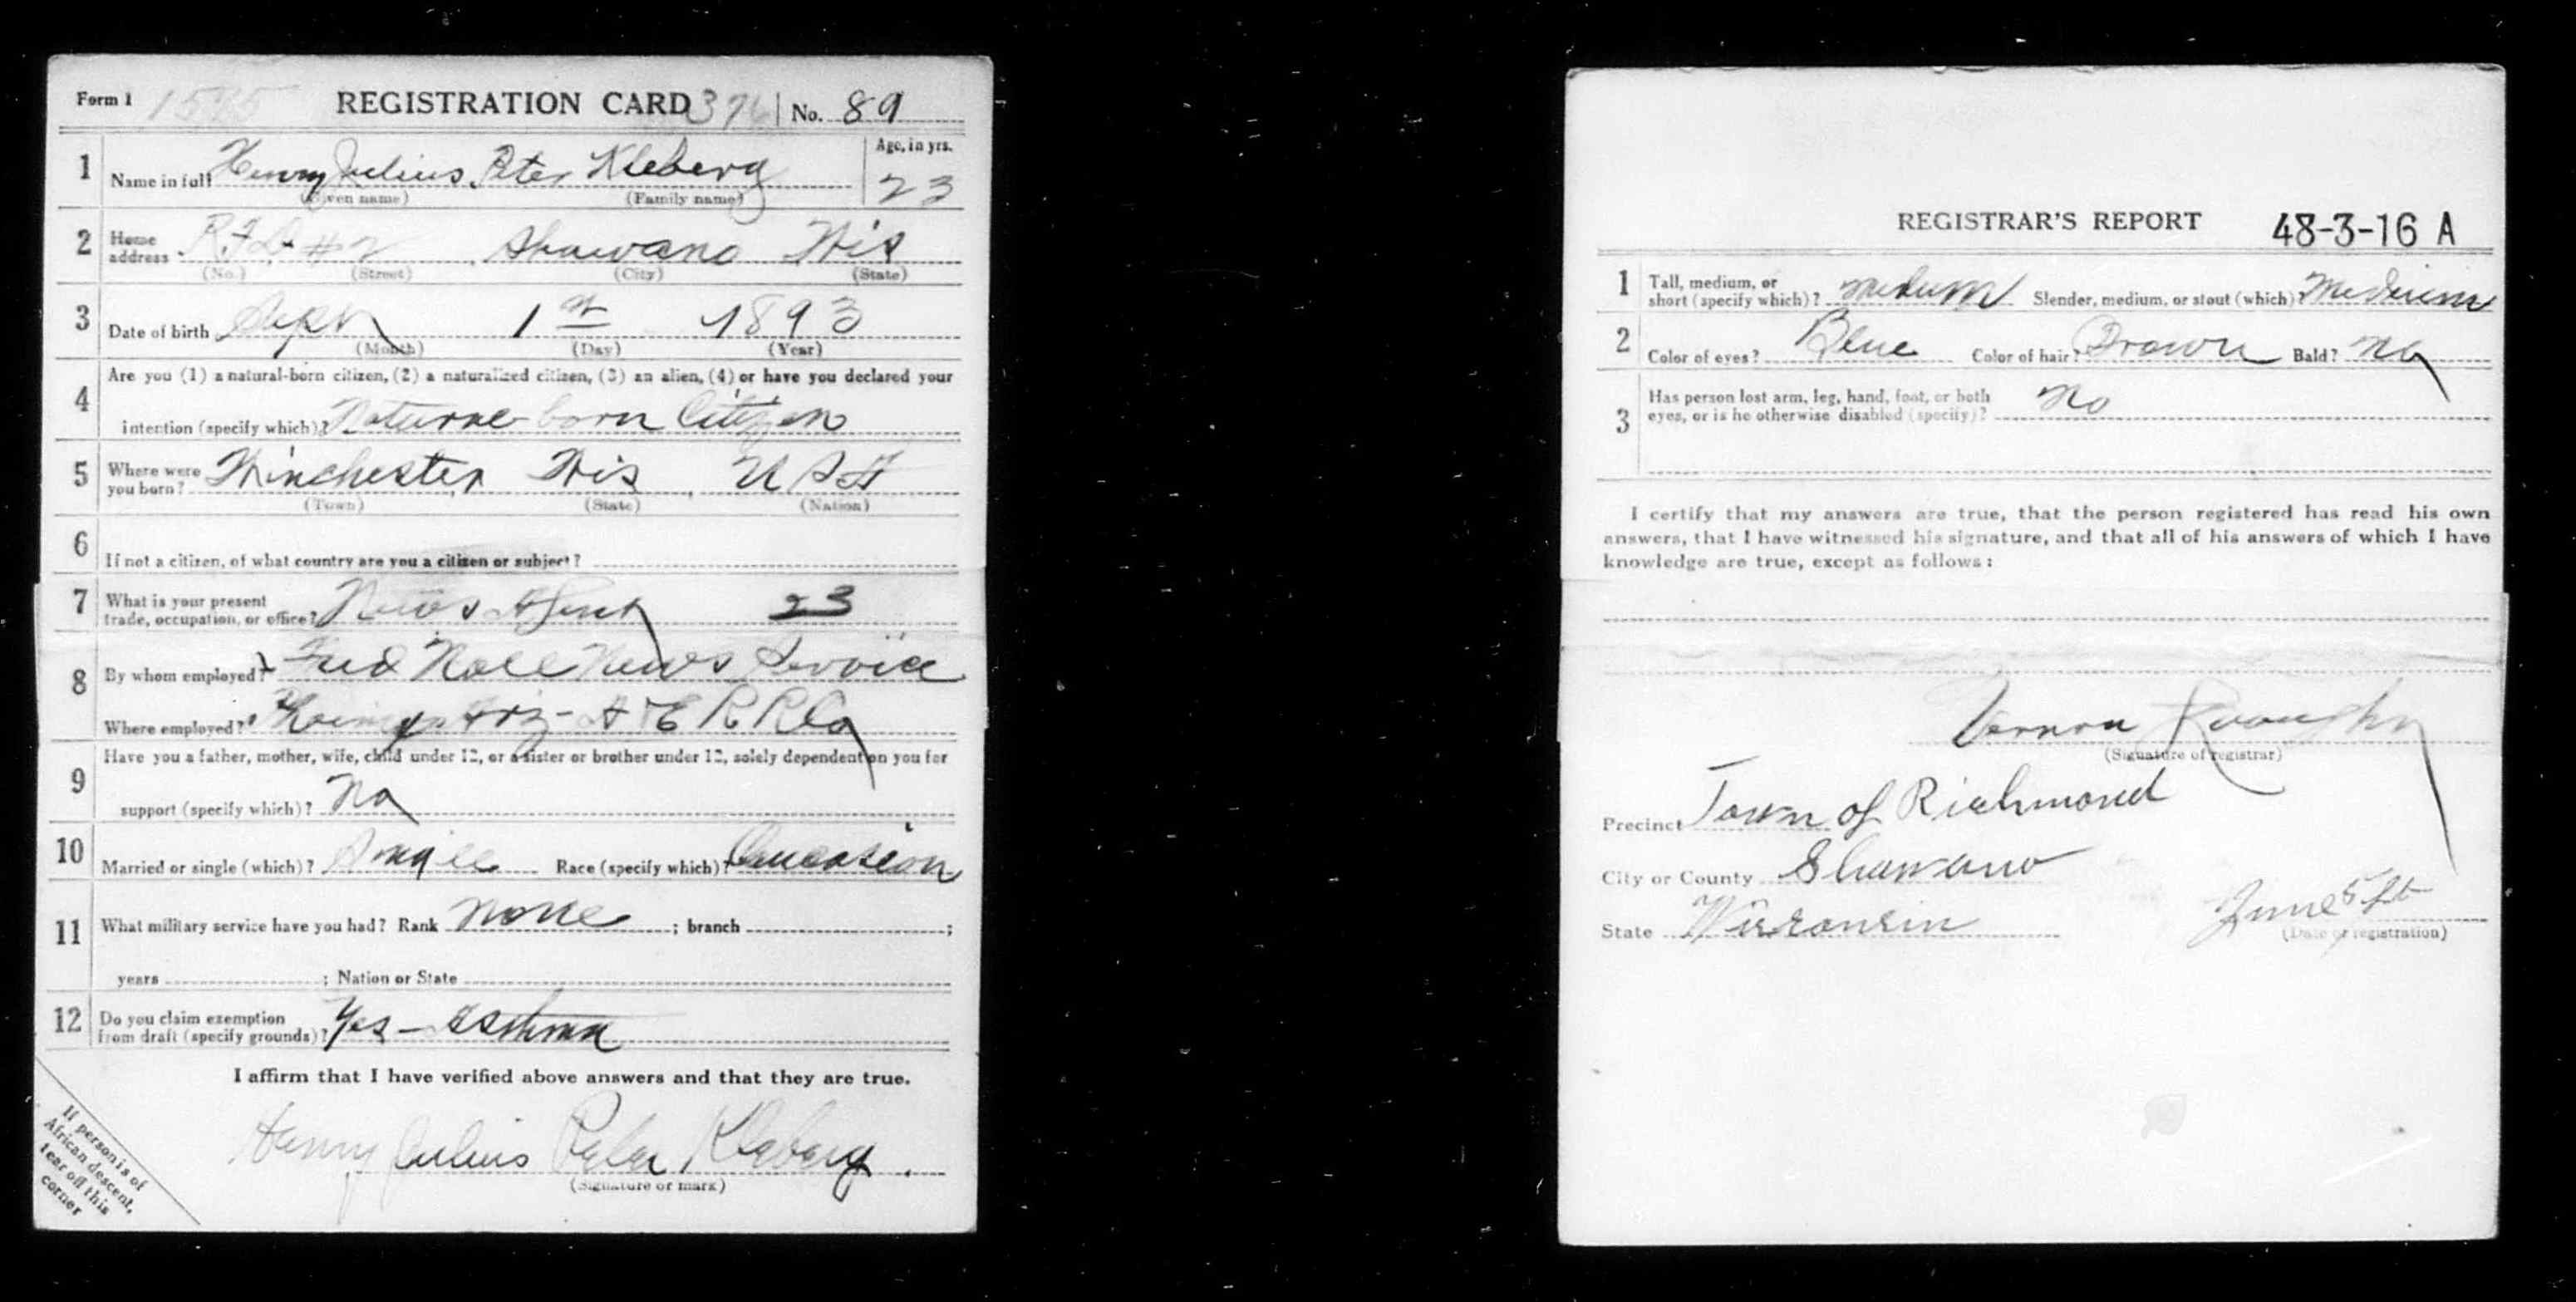 Form 1 1575 REGISTRATION CARD 376 No. 89
1 Name in full Henry Julius Peter Kleberg Age, in yrs. 23
(Given name) (Family name)
2 Home address R.F.D. #2 Shawano Wis
(No.) (Street) (City) (State)
3 Date of birth Sept 1st 1893
(Month) (Day) (Year)
4 Are you (1) a natural-born citizen, (2) a naturalized citizen, (3) an alien, (4) or have you declared your
intention (specify which)? born Citizen
5 Where were you born? Winchester Wis USA
(Town) (State) (Nation)
6 If not a citizen, of what country are you a citizen or subject?
7 What is your present
trade, occupation, or office? News Agent 23
8 By whom employed? Fred News Service
Where employed? Ariz- R R Co
9 Have you a father, mother, wife, child under 12, or a sister or brother under 12, solely dependent on you for
support (specify which)? No
10 Married or single (which)? Single Race (specify which)? Caucasion
11 What military service have you had? Rank None ; branch ;
years ; Nation or State
12 Do you claim exemption
from draft (specify grounds)? Yes - asthma
I affirm that I have verified above answers and that they are true.
Henry Julius Peter Kleberg.
(Signature or mark)
If person is of
African descent,
tear off this
corner
REGISTRAR'S REPORT 48-3-16 A
1 Tall, medium, or
short (specify which)? medium Slender, medium, or stout (which)? Medium
2 Color of eyes? Blue Color of hair? Brown Bald? No
3 Has person lost arm, leg, hand, foot, or both
eyes, or is he otherwise disabled (specify)? No
I certify that my answers are true, that the person registered has read his own
answers, that I have witnessed his signature, and that all of his answers of which I have
knowledge are true, except as follows:
Vernon
(Signature of registrar)
Precinct Town of Richmond
City or County Shawano
State Wisconsin June 5
(Date of registration)